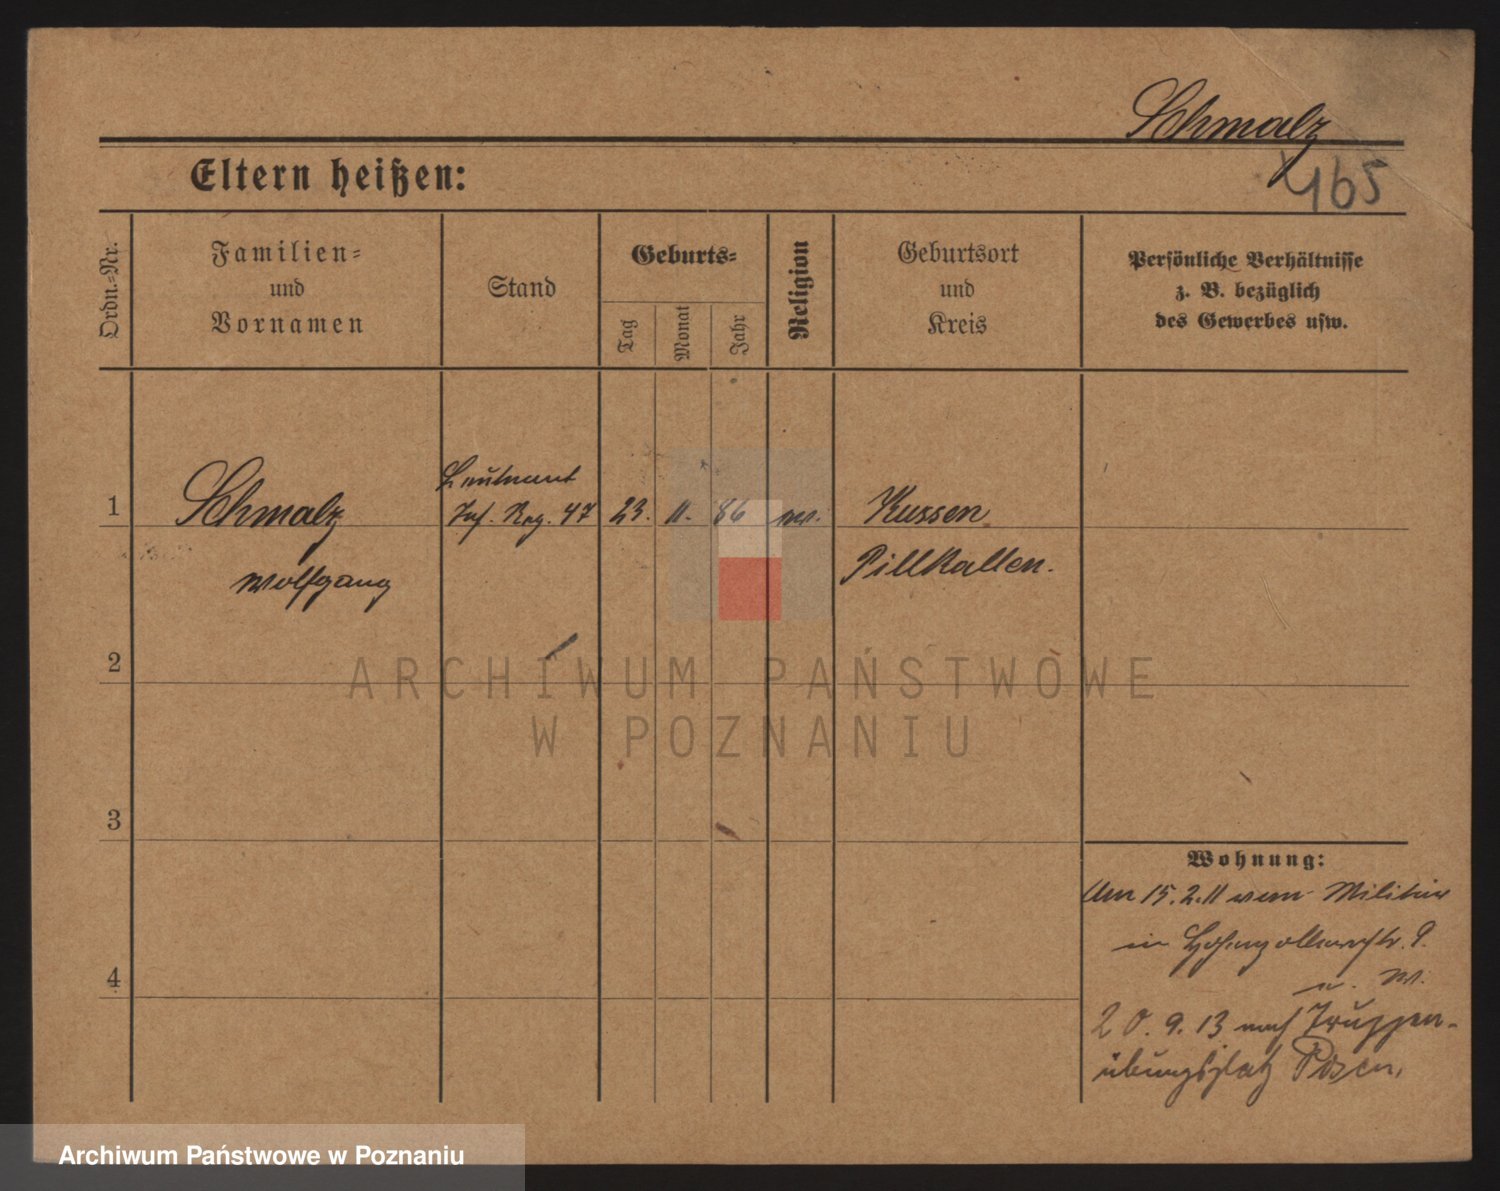 Schmalz
465
Eltern heißen:
Ordn.-Nr.
Familien-
und
Vornamen
Stand
Geburts-
Tag
Monat
Jahr
Religion
Geburtsort
und
Kreis
Persönliche Verhältnisse
z. B. bezüglich
des Gewerbes usw.
1
Schmalz
Wolfgang
Leutnant
Inf. Reg. 47
23.
11.
86
ev.
Kussen
Pillkallen.
2
3
4
Wohnung:
Am 15.2.11 vom Militär
in Hohenzollernstr. 9.
20.9.13 nach Truppen-
übungsplatz Posen.
ARCHIWUM PAŃSTWOWE
W POZNANIU
Archiwum Państwowe w Poznaniu